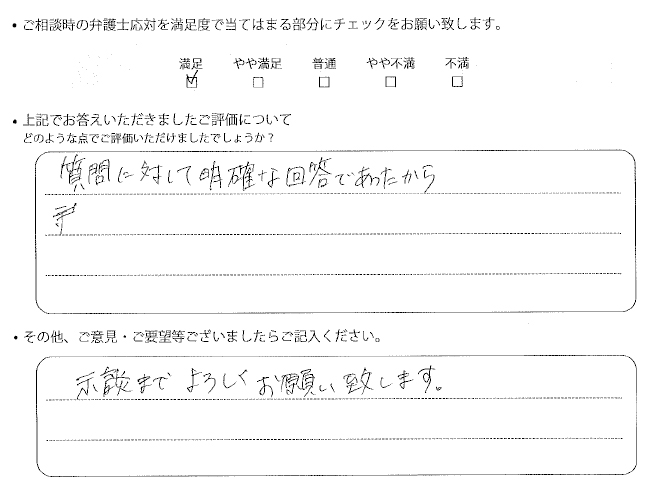 ・ご相談時の弁護士応対を満足度で当てはまる部分にチェックをお願い致します。
満足 やや満足 普通 やや不満 不満
・上記でお答えいただきましたご評価について
どのような点でご評価いただけましたでしょうか？
質問に対して明確な回答であったから
・その他、ご意見・ご要望等ございましたらご記入ください。
示談まで よろしくお願い致します。